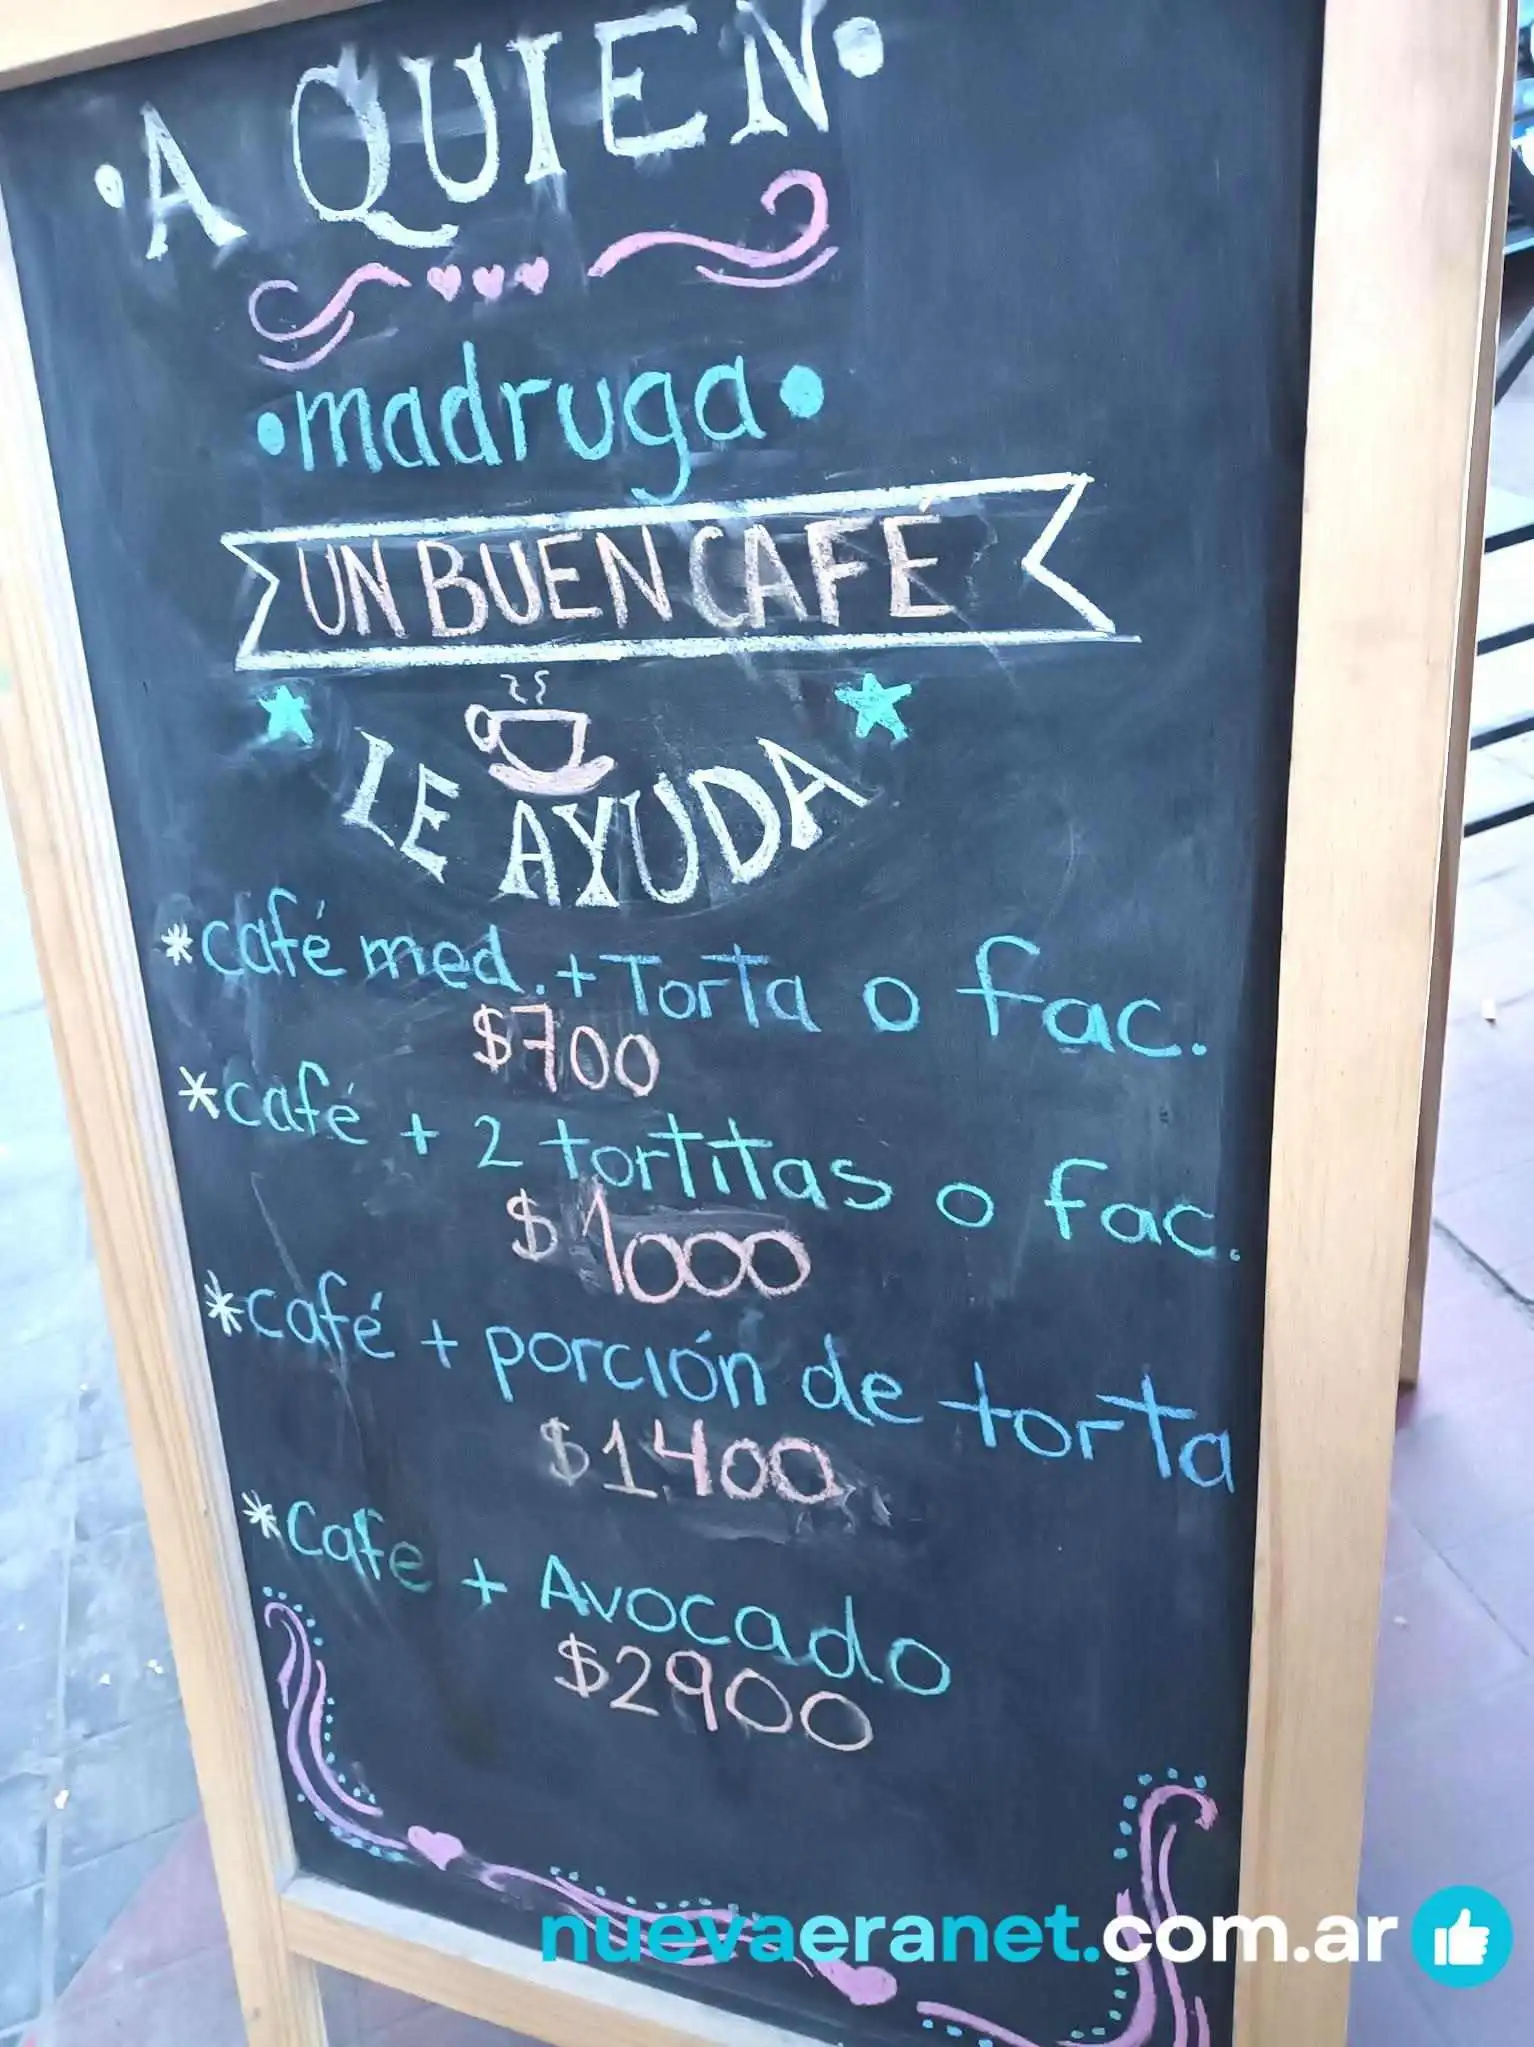 • A QUIEN •
• madruga •
UN BUEN CAFÉ
LE AYUDA
*café med. + Torta o fac.
$700
*café + 2 tortitas o fac.
$1000
*café + porción de torta
$1400
*Cafe + Avocado
$2900
nuevaeranet.com.ar